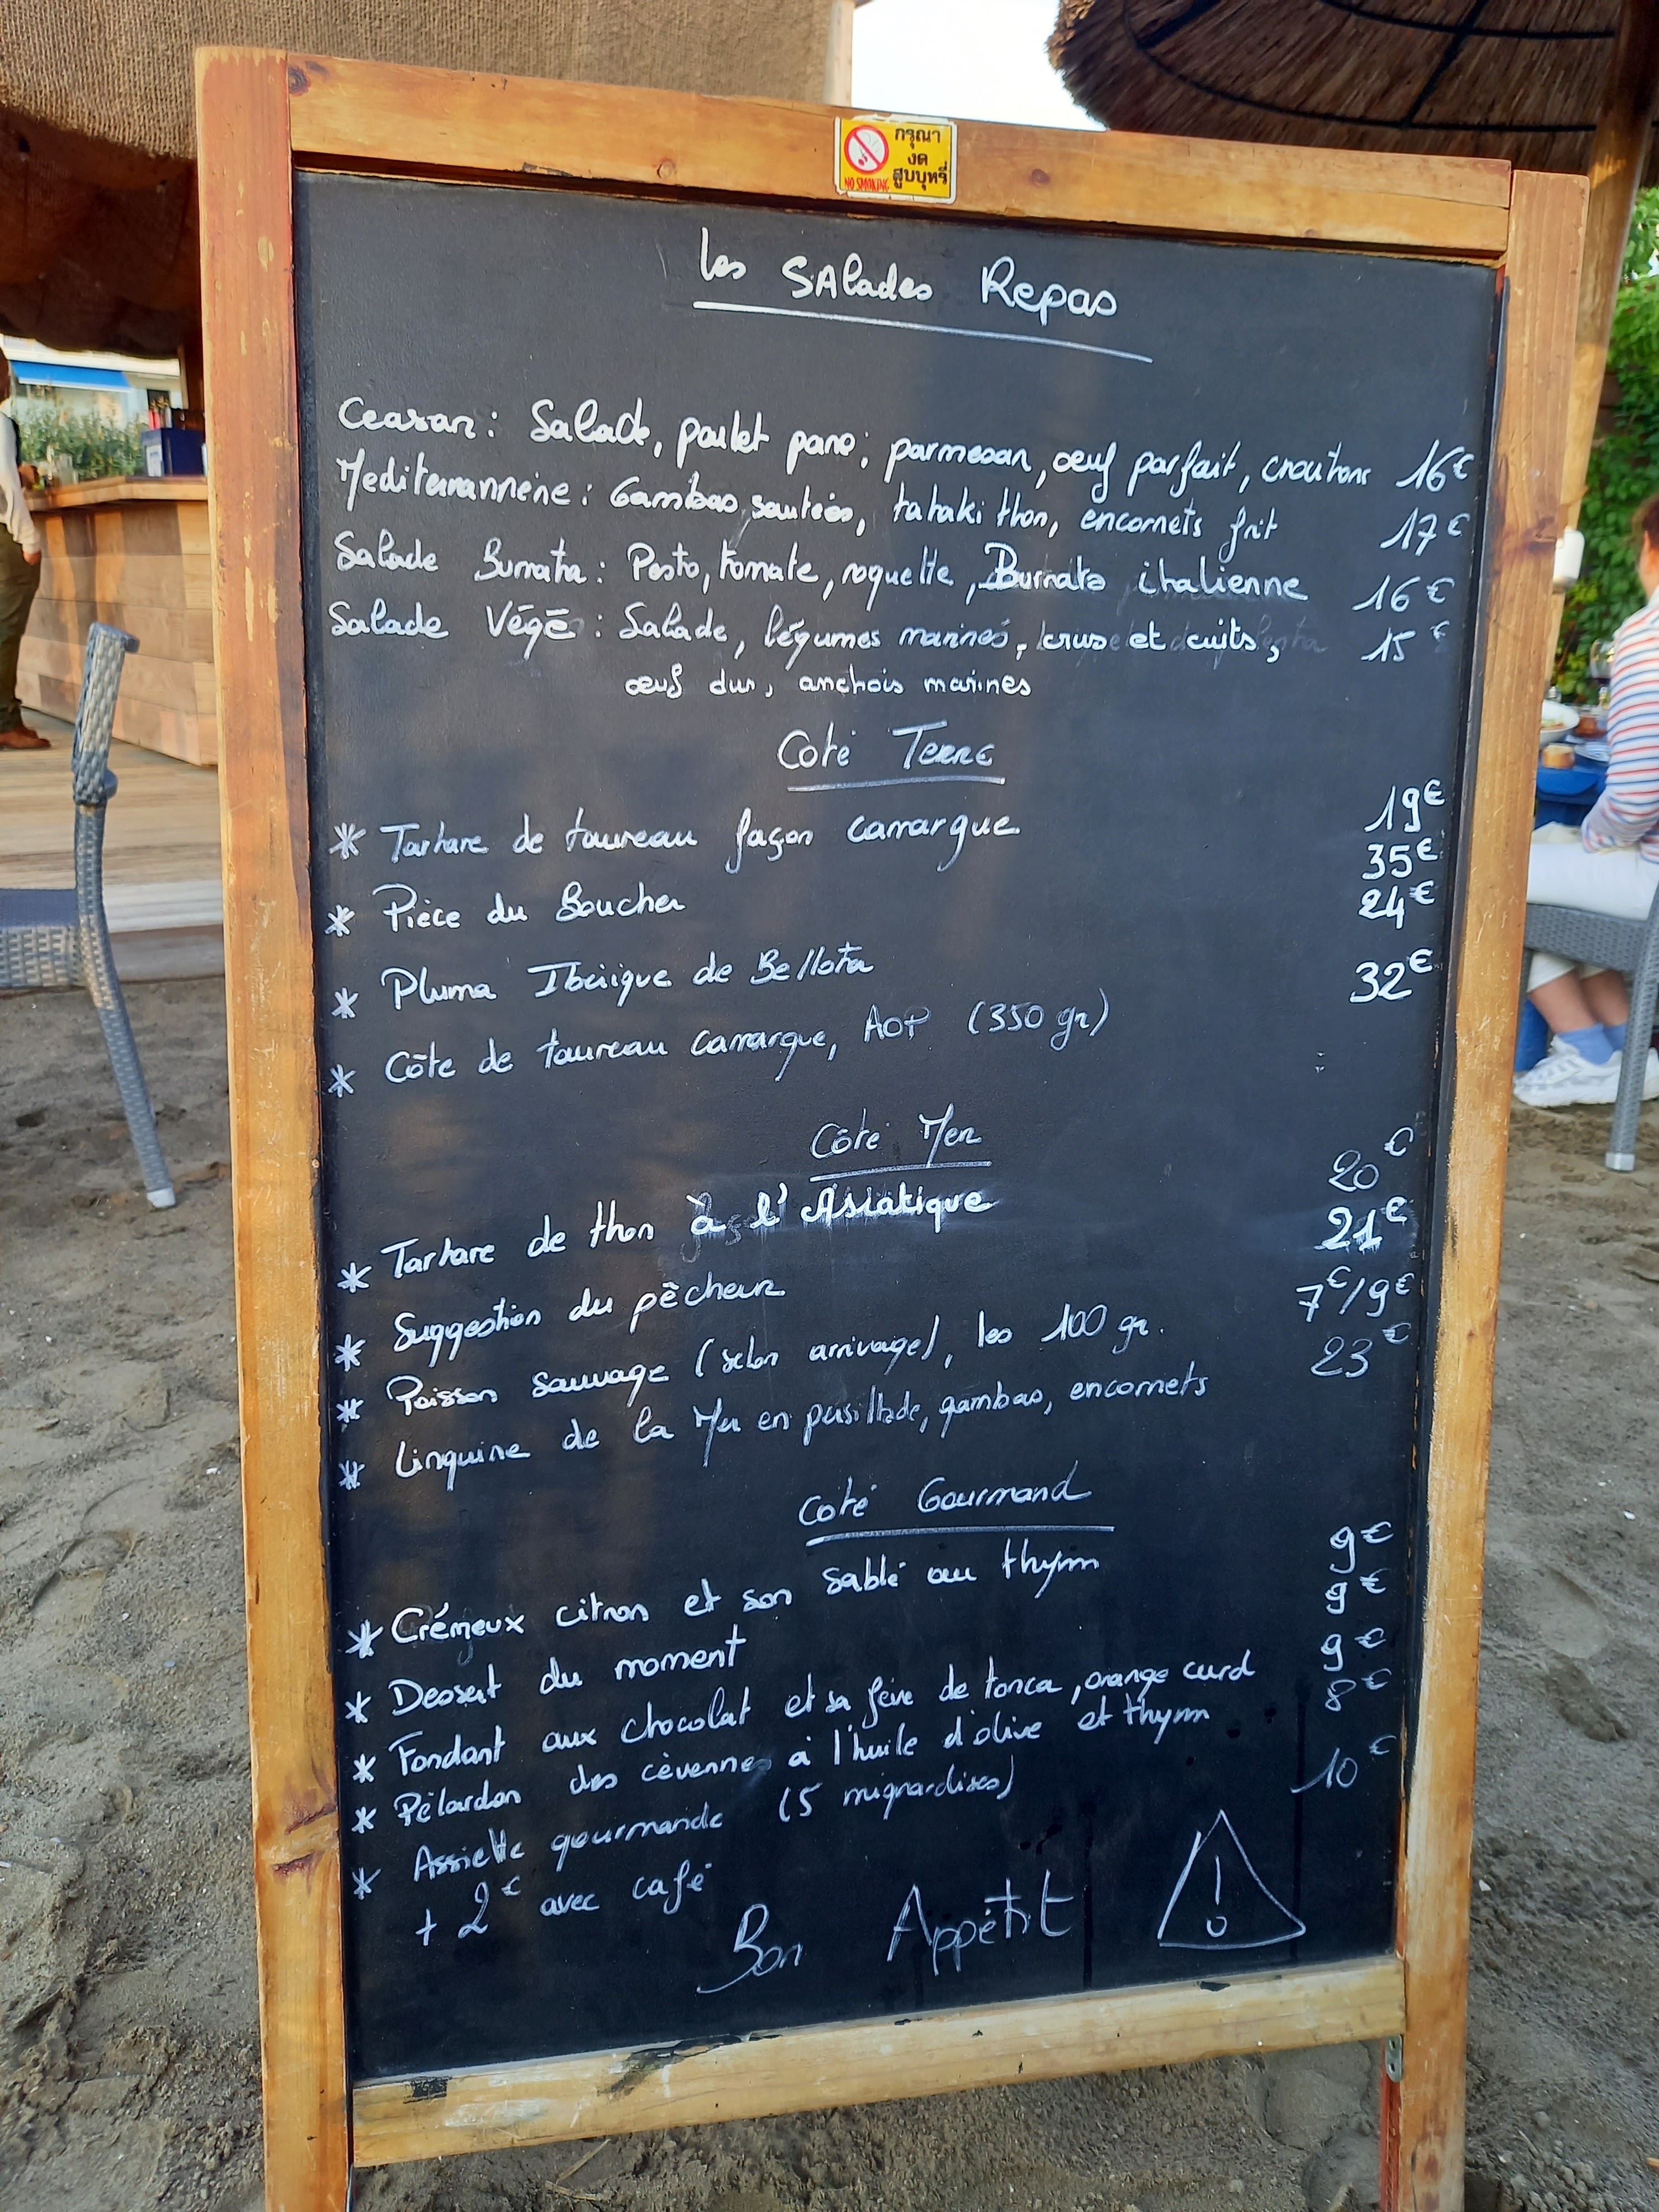 กรุณา
งด
สูบบุหรี่
NO SMOKING
Les SAlades Repas
Ceasar : Salade, poulet pané, parmesan, œuf parfait, croutons 16€
Mediterrannéne : Gambas sautées, tataki thon, encornets frit 17€
Salade Burrata : Pesto, tomate, roquette, Burrata italienne 16€
Salade Végé : Salade, légumes marinés, crus et cuits, 15€
œuf dur, anchois marines
Coté Terre
* Tartare de taureau façon camargue 19€
* Pièce du Boucher 35€
* Pluma Ibérique de Bellota 24€
* Côte de taureau camargue, AOP (350 gr) 32€
Côté Mer
* Tartare de thon à l'Asiatique 20€
* Suggestion du pêcheur 21€
* Poisson sauvage (selon arrivage), les 100 gr. 7€/9€
* Linguine de la Mer en persillade, gambas, encornets 23€
Coté Gourmand
* Crémeux citron et son sablé au thym 9€
* Dessert du moment 9€
* Fondant aux chocolat et sa fève de tonca, orange curd 9€
* Pélardon des cévennes à l'huile d'olive et thym 8€
* Assiette gourmande (5 mignardises) 10€
+ 2€ avec café
Bon Appétit !